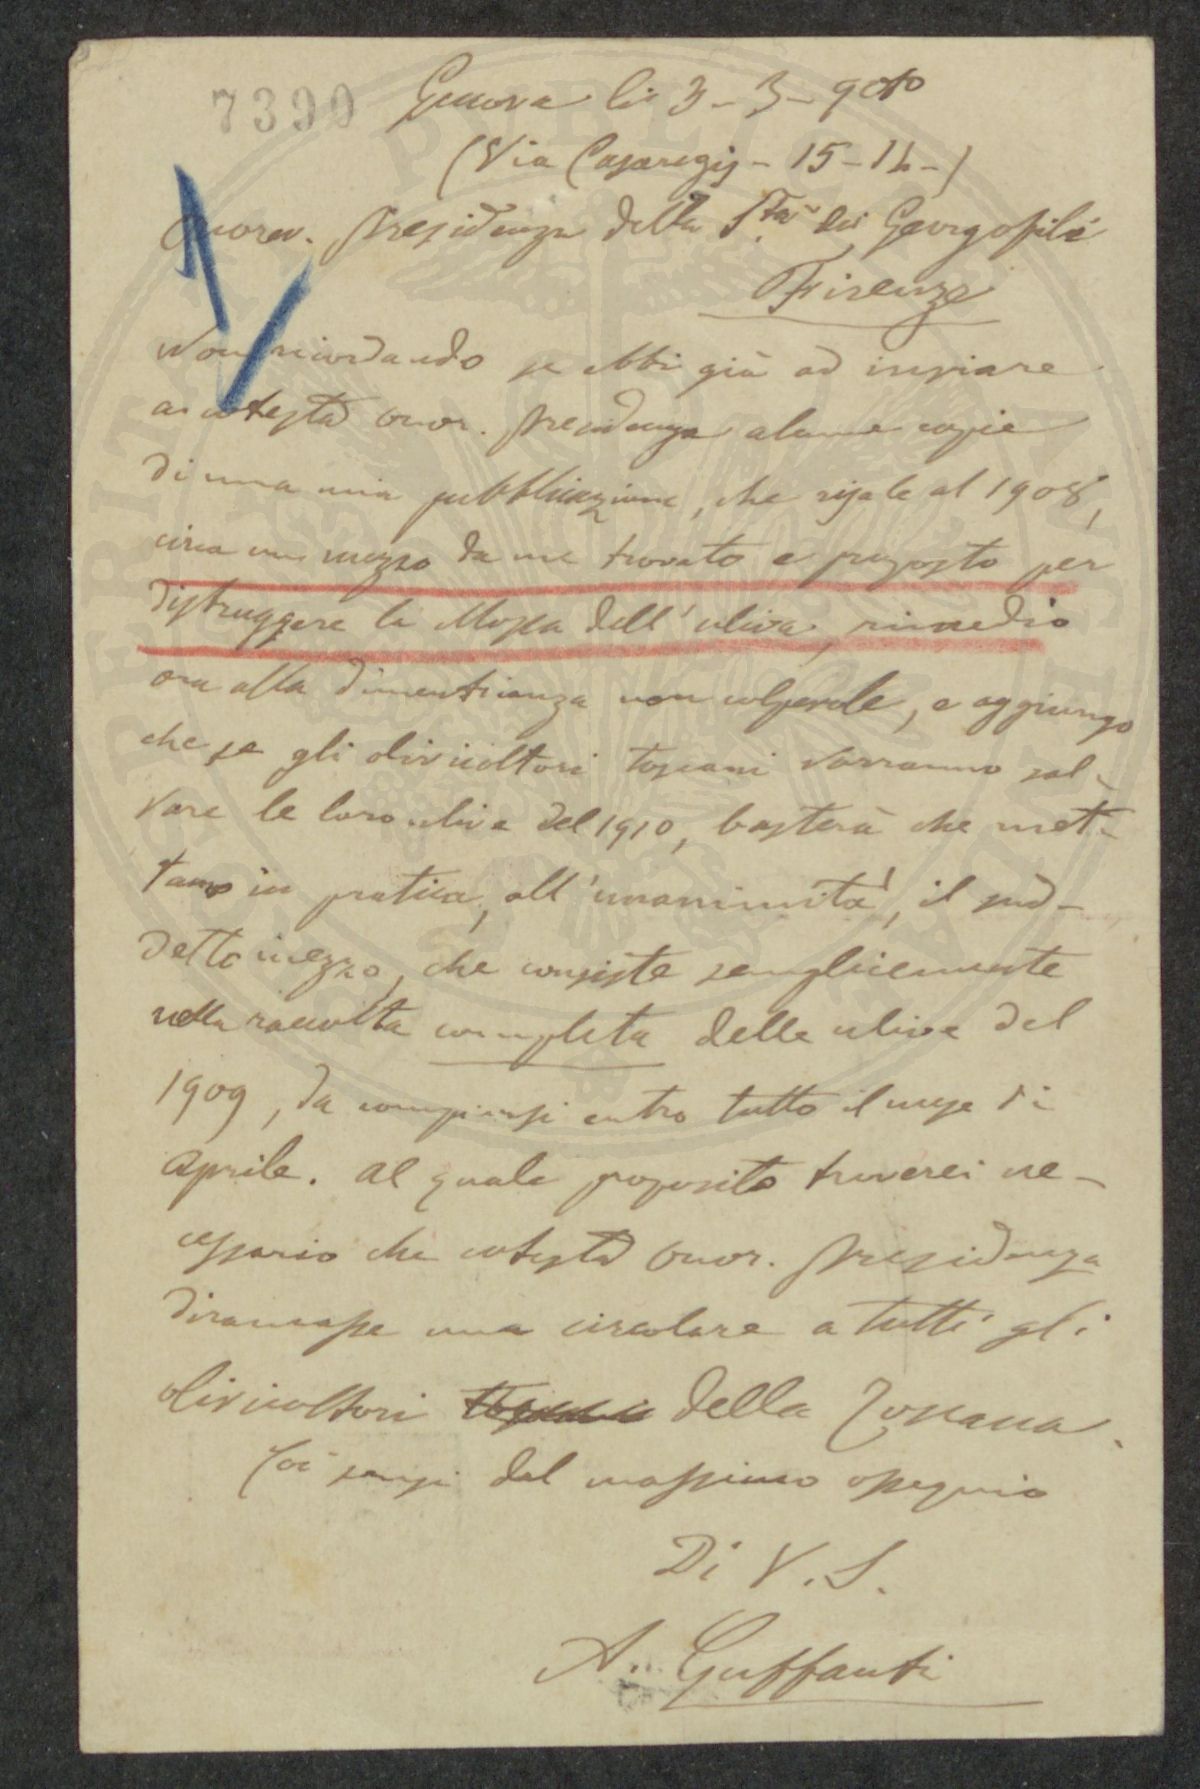 7390
Genova li 3-3-910
(Via Casaregis - 15-14-)
Onorev. Presidenza della Sta dei Georgofili
Firenze
Non ricordando se ebbi già ad inviare
a cotesta onor. Presidenza alcune copie
di una mia pubblicazione, che risale al 1908,
circa un mezzo da me trovato e proposto per
distruggere la Mosca dell'uliva, rimedio
ora alla dimenticanza non colpevole, e aggiungo
che se gli olivicoltori toscani vorranno sal-
vare le loro ulive del 1910, basterà che met-
tano in pratica, all'unanimità, il sud-
detto mezzo, che consiste semplicemente
nella raccolta completa delle ulive del
1909, da compiersi entro tutto il mese di
Aprile. Al quale proposito troverei ne-
cessario che cotesta onor. Presidenza
diramasse una circolare a tutti gli
olivicoltori della Toscana.
Coi sensi del massimo ossequio
Di V. S.
A. Guffanti